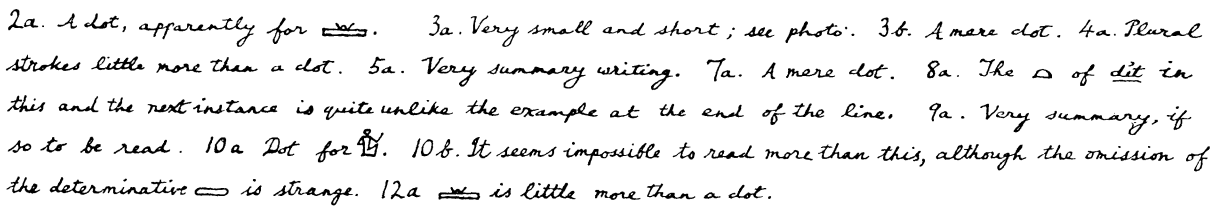 2a. A dot, apparently for 𓏞. 3a. Very small and short; see photo. 3b. A mere dot. 4a. Plural
strokes little more than a dot. 5a. Very summary writing. 7a. A mere dot. 8a. The 𓏏 of dit in
this and the next instance is quite unlike the example at the end of the line. 9a. Very summary, if
so to be read. 10a Dot for. 10b. It seems impossible to read more than this, although the omission of
the determinative is strange. 12a is little more than a dot.